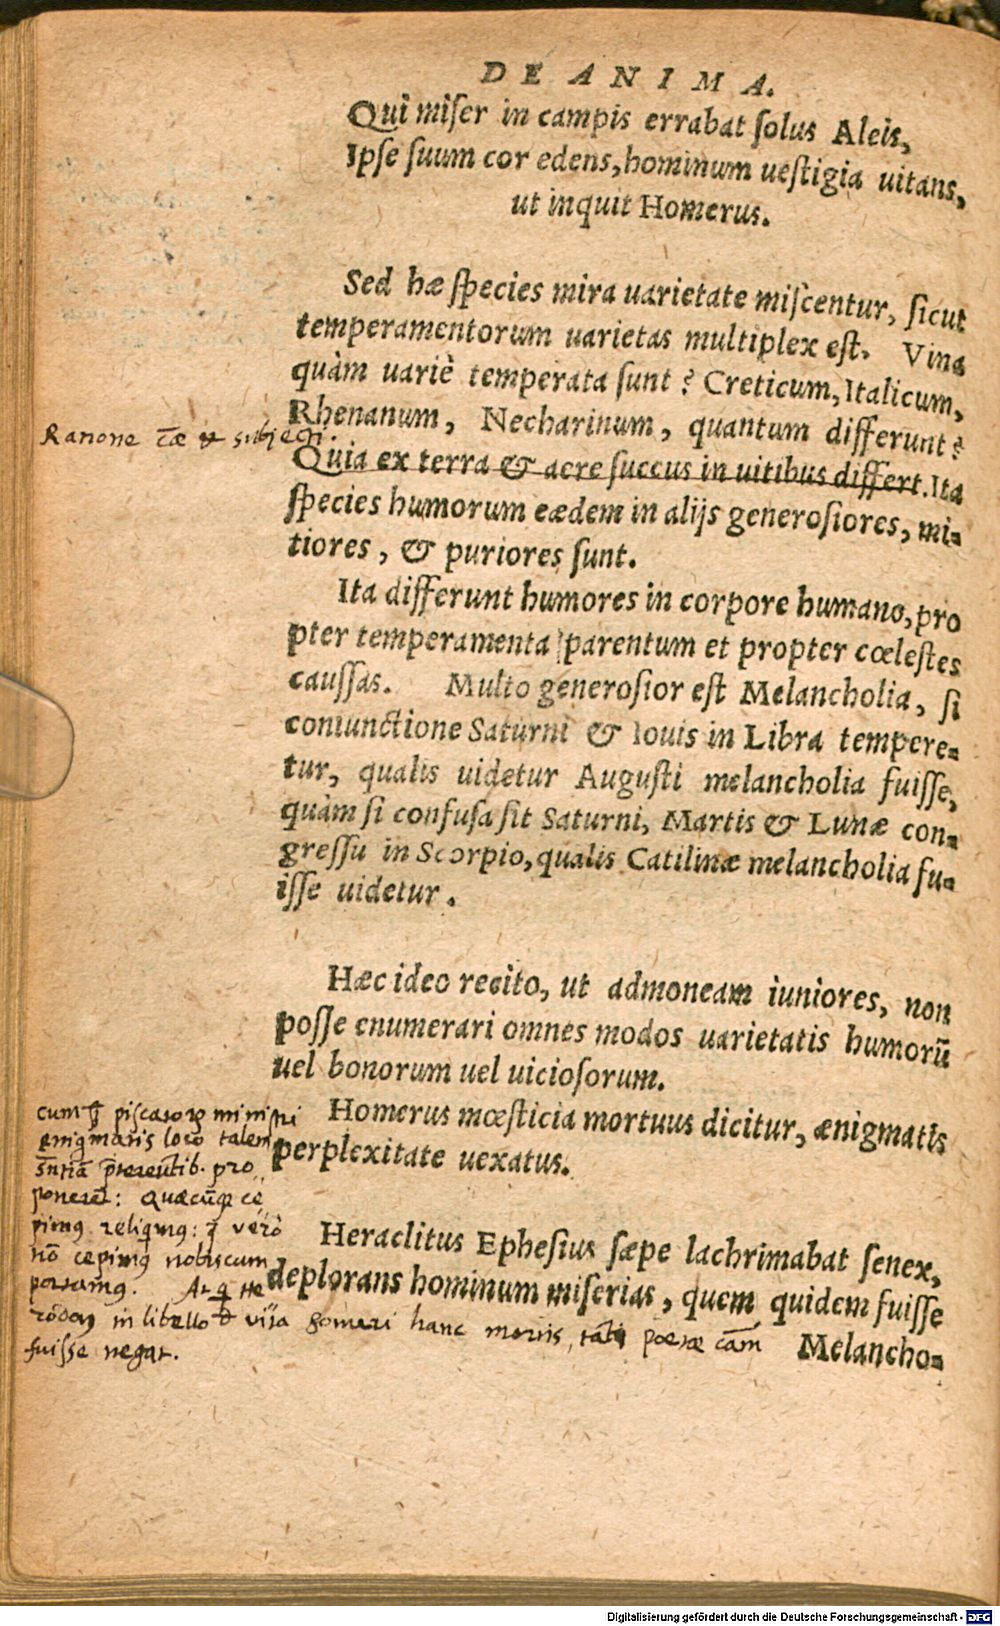 DE ANIMA.
Qui miſer in campis errabat ſolus Aleis,
Ipſe ſuum cor edens, hominum ueſtigia uitans,
ut inquit Homerus.
Sed hæ ſpecies mira uarietate miſcentur, ſicut
temperamentorum uarietas multiplex eſt. Vina
quàm uariè temperata ſunt? Creticum, Italicum,
Rhenanum, Necharinum, quantum differunt?
Quia ex terra & aere ſuccus in uitibus differt. Ita
ſpecies humorum eædem in alijs generoſiores, mi=
tiores, & puriores ſunt.
Ita differunt humores in corpore humano, pro
pter temperamenta parentum et propter cœleſtes
cauſſas. Multo generoſior eſt Melancholia, ſi
coniunctione Saturni & Iouis in Libra tempere=
tur, qualis uidetur Auguſti melancholia fuiſſe,
quàm ſi confuſa ſit Saturni, Martis & Lunæ con=
greſſu in Scorpio, qualis Catilinæ melancholia fu=
iſſe uidetur.
Hæc ideo recito, ut admoneam iuniores, non
poſſe enumerari omnes modos uarietatis humorū
uel bonorum uel uicioſorum.
Homerus mœſticia mortuus dicitur, ænigmatis
perplexitate uexatus.
Heraclitus Epheſius ſæpe lachrimabat ſenex,
deplorans hominum miſerias, quem quidem fuiſſe
Melancho=
Ratione subjecti.
cum piscator ministri
enigmatis loco talem
pro
poneret: Quæcunq ce
pimus reliquimus: vero
nō cepimus nobiscum
portamus. At He
in libello vita homeri hanc mortis, poetæ cām
fuisse negat.
Digitalisierung gefördert durch die Deutsche Forschungsgemeinschaft - DFG